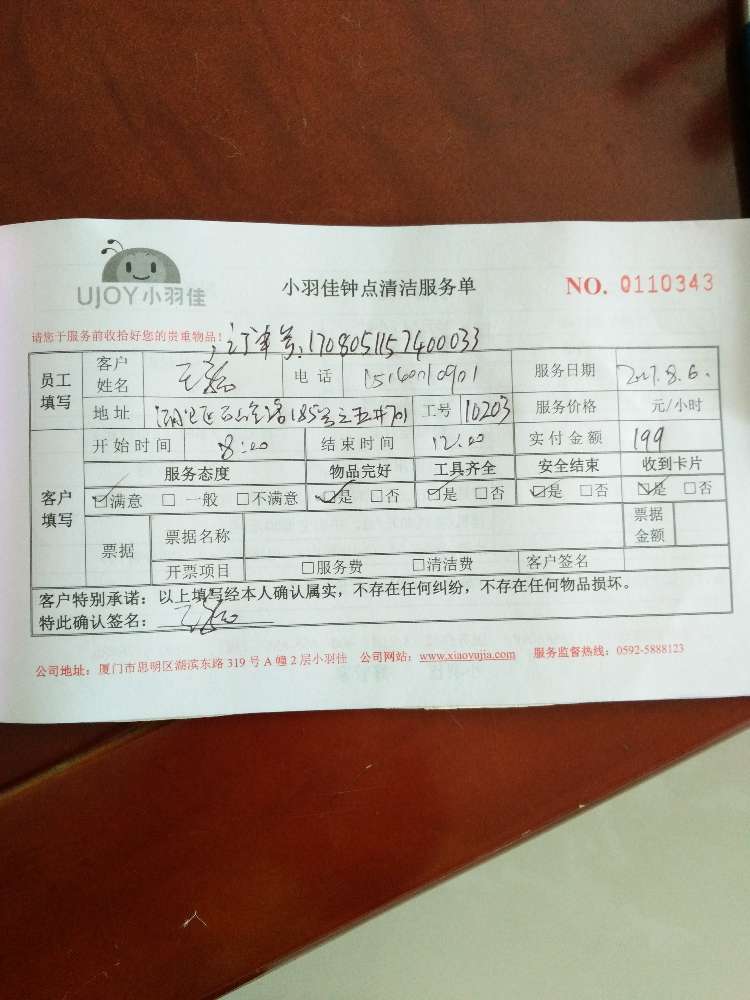 UJOY小羽佳
小羽佳钟点清洁服务单
NO. 0110343
请您于服务前收拾好您的贵重物品!
订单号:1708051157400033
员工填写 客户姓名 王 电话 15160710901 服务日期 2017.8.6.
地址 185号之五井701 工号 10203 服务价格 元/小时
开始时间 8:00 结束时间 12:00 实付金额 199
客户填写 服务态度 物品完好 工具齐全 安全结束 收到卡片
☑满意 □一般 □不满意 ☑是 □否 ☑是 □否 ☑是 □否 ☑是 □否
票据 票据名称 票据金额
开票项目 □服务费 □清洁费 客户签名
客户特别承诺:以上填写经本人确认属实,不存在任何纠纷,不存在任何物品损坏。
特此确认签名:王
公司地址:厦门市思明区湖滨东路 319 号 A 幢 2 层小羽佳 公司网站:www.xiaoyujia.com 服务监督热线:0592-5888123